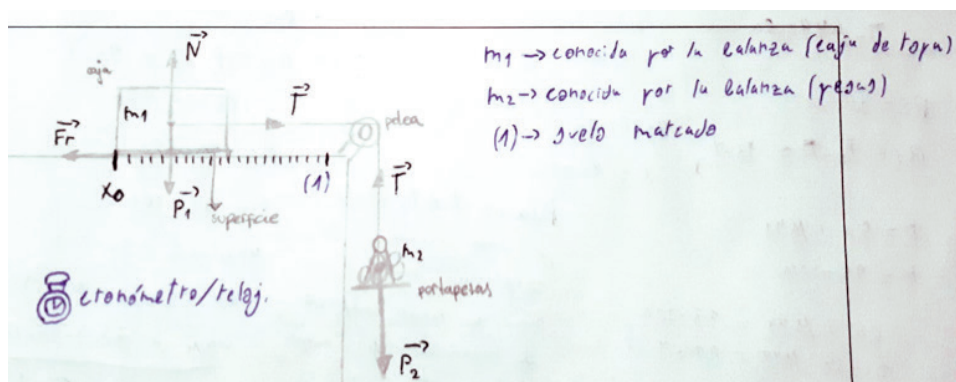 N
caja
m1
T
Fr
polea
x0
(1)
P1
superficie
T
m2
portapesas
P2
cronómetro/reloj.
m1 → conocida por la balanza (caja de topa)
m2 → conocida por la balanza (pesas)
(1) → suelo marcado